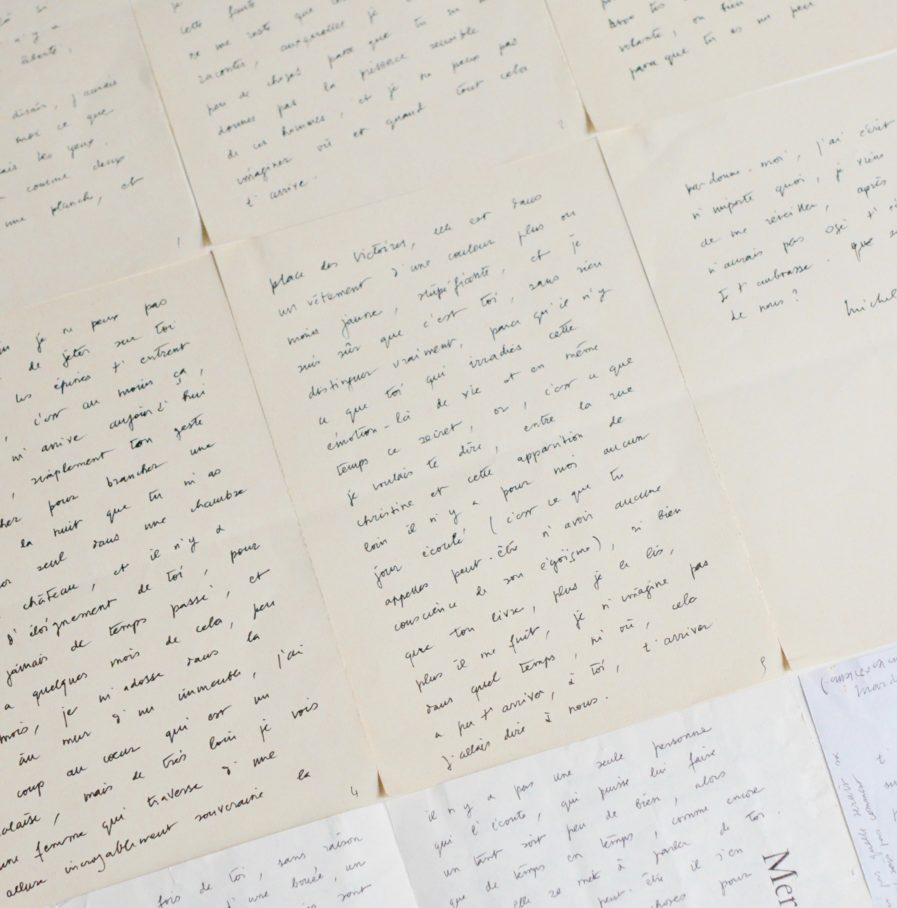 cette faute
ne me reste que
raconter, auxquelles je
peu de choses parce que tu
donnes pas la présence sensible
de ces hommes, et je ne peux pas
imaginer où et quand tout cela
t'arrive.
2
volante, ou bien
parce que tu es un peu
disais, j'aurais
moi ce que
les yeux.
comme deux
une planche, et
1
je ne peux pas
de jeter sur toi
les épines t'entrent
, c'est au moins ça,
m'arrive aujourd'hui
, simplement ton geste
pour brancher une
la nuit que tu m'as
seul dans une chambre
château, et il n'y a
d'éloignement de toi, pour
jamais de temps passé, et
a quelques mois de cela, peu
mois, je m'adosse dans la
au mur d'un immeuble, j'ai
coup au cœur qui est un
malaise, mais de très loin je vois
une femme qui traverse d'une
allure incroyablement souveraine la
4
place des Victoires, elle est dans
un vêtement d'une couleur plus ou
moins jaune, stupéfiante, et je
suis sûr que c'est toi, sans rien
distinguer vraiment, parce qu'il n'y
a que toi qui irradies cette
émotion-là de vie et en même
temps ce secret, or, c'est ce que
je voulais te dire, entre la rue
christine et cette apparition de
loin il n'y a pour moi aucun
jour écoulé (c'est ce que tu
appelles peut-être n'avoir aucune
conscience de son égoïsme), si bien
que ton livre, plus je le lis,
plus il me fuit, je n'imagine pas
dans quel temps, ni où, cela
a pu t'arriver, à toi, t'arriver
j'allais dire à nous.
5
pardonne-moi, j'ai écrit
n'importe quoi, je viens
de me réveiller, après
n'aurais pas osé t'
Je t'embrasse. que
de nous?
Michel
il n'y a pas une seule personne
qui l'écoute, qui puisse lui faire
un tant soit peu de bien, alors
que de temps en temps, comme encore
elle se met à parler de toi.
peut-être il s'en
choses pour
fois de toi, sans raison
d'une bouée, un
sont
Mer